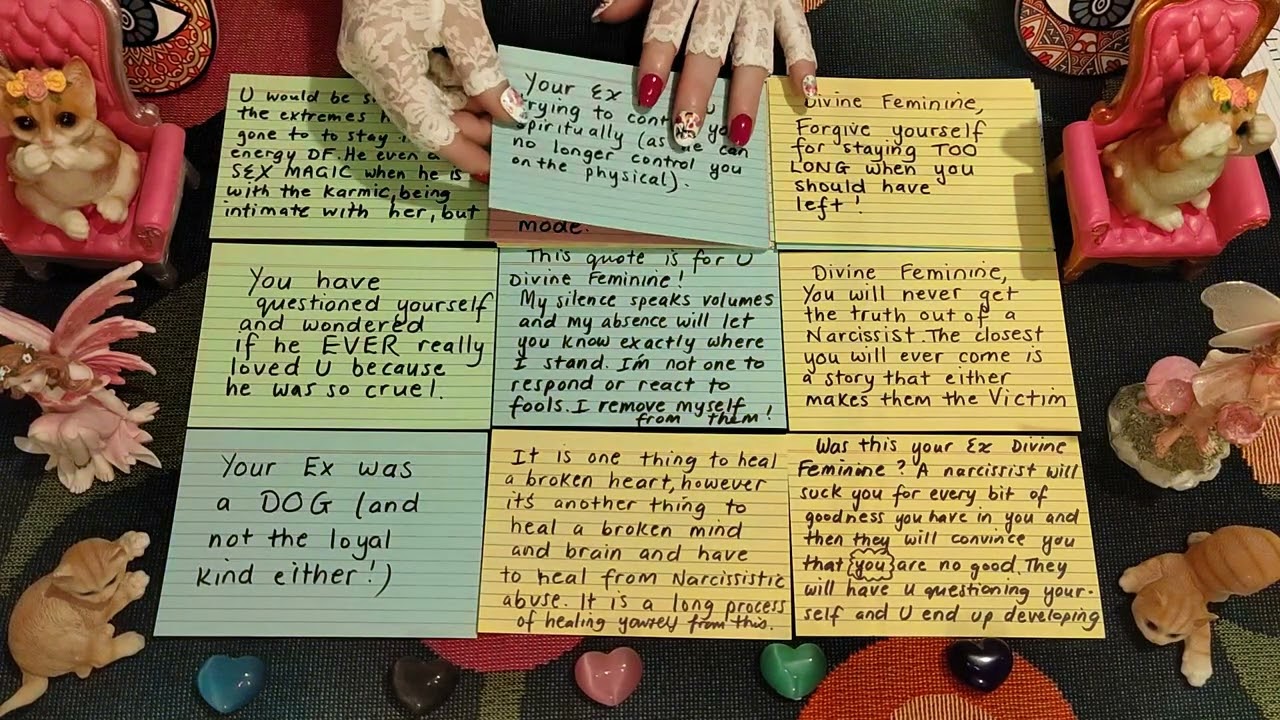 U would be
the extremes
gone to to stay
energy DF. He even
SEX MAGIC when he is
with the Karmic, being
intimate with her, but
Your Ex
trying to
spiritually (as can
no longer control you
on the physical).
mode.
Divine Feminine,
Forgive yourself
for staying TOO
LONG when you
should have
left!
You have
questioned yourself
and wondered
if he EVER really
loved U because
he was so cruel.
This quote is for U
Divine Feminine!
My silence speaks volumes
and my absence will let
you know exactly where
I stand. I'm not one to
respond or react to
fools. I remove myself
from them!
Divine Feminine,
You will never get
the truth out of a
Narcissist. The closest
you will ever come is
a story that either
makes them the Victim
Your Ex was
a DOG (and
not the loyal
kind either!)
It is one thing to heal
a broken heart, however
it's another thing to
heal a broken mind
and brain and have
to heal from Narcissistic
abuse. It is a long process
of healing yourself from this.
Was this your Ex Divine
Feminine? A narcissist will
suck you for every bit of
goodness you have in you and
then they will convince you
that you are no good. They
will have u questioning your-
self and U end up developing